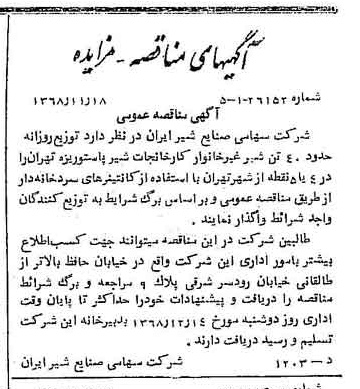 آگهیهای مناقصه - مزایده
شماره ۲۶۱۵۲-۱-۵ ۱۳۶۸/۱۱/۱۸
آگهی مناقصه عمومی
شرکت سهامی صنایع شیر ایران در نظر دارد توزیع روزانه
حدود ۴۰ تن شیر غیرخانوار کارخانجات شیر پاستوریزه تهران را
در ۴ یا ۵ نقطه از شهر تهران با استفاده از کانتینرهای سردخانه‌دار
از طریق مناقصه عمومی و بر اساس برگ شرایط به توزیع کنندگان
واجد شرائط واگذار نمایند.
طالبین شرکت در این مناقصه میتوانند جهت کسب اطلاع
بیشتر بامور اداری این شرکت واقع در خیابان حافظ بالاتر از
طالقانی خیابان رودسر شرقی پلاک ۹ مراجعه و برگ شرائط
مناقصه را دریافت و پیشنهادات خود را حداکثر تا پایان وقت
اداری روز دوشنبه مورخ ۱۳۶۸/۱۲/۱۴ بدبیرخانه این شرکت
تسلیم و رسید دریافت دارند.
د — ۱۲۰۳ شرکت سهامی صنایع شیر ایران